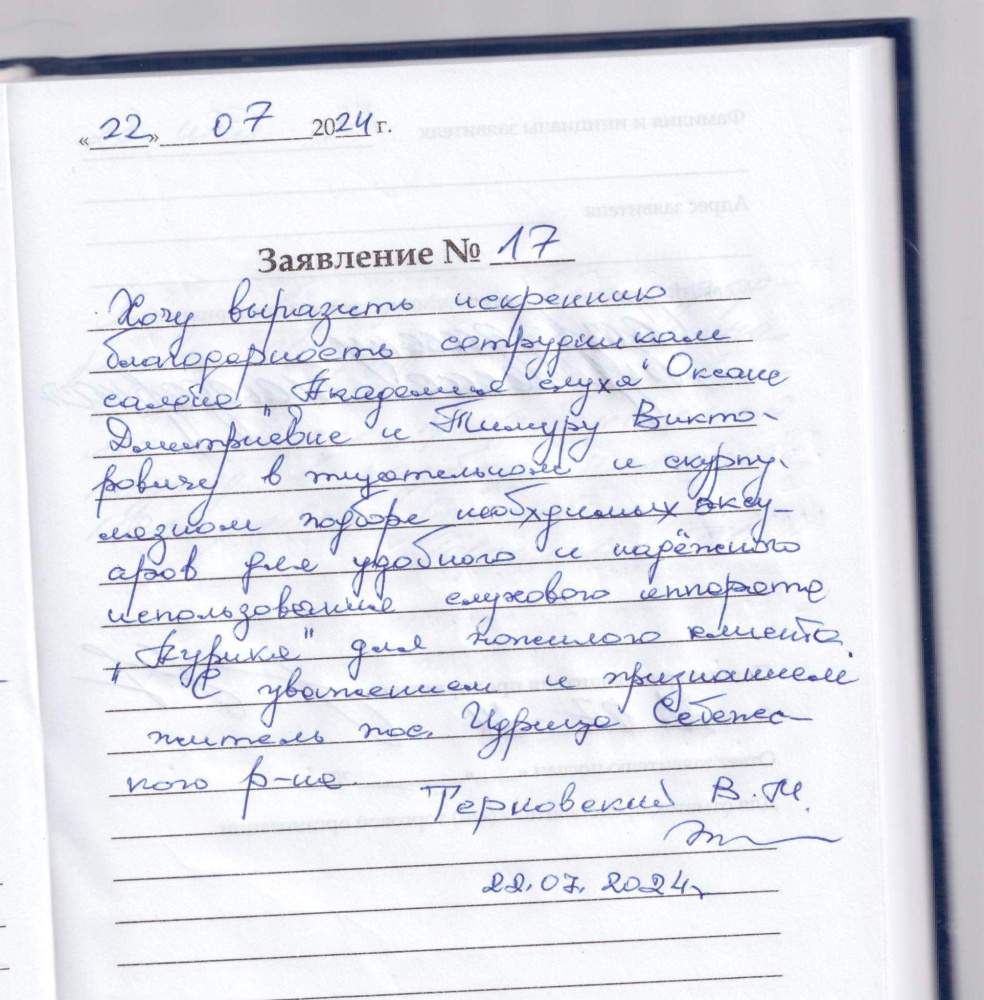 «22» 07 2024 г.
Заявление № 17
Хочу выразить искреннию
благодарность сотрудникам
салона "Академия слуха" Оксане
Дмитриевне и Тимуру Викто-
ровичу в тщательном и скурпу-
лезном подборе необхдимых аксу-
аров для удобного и надёжного
использования слухового аппарата
„Аурика" для пожилого клиента.
С уважением и признанием
житель пос. Идрица Себежс-
кого р-на
Терновский В. М.
22.07.2024г